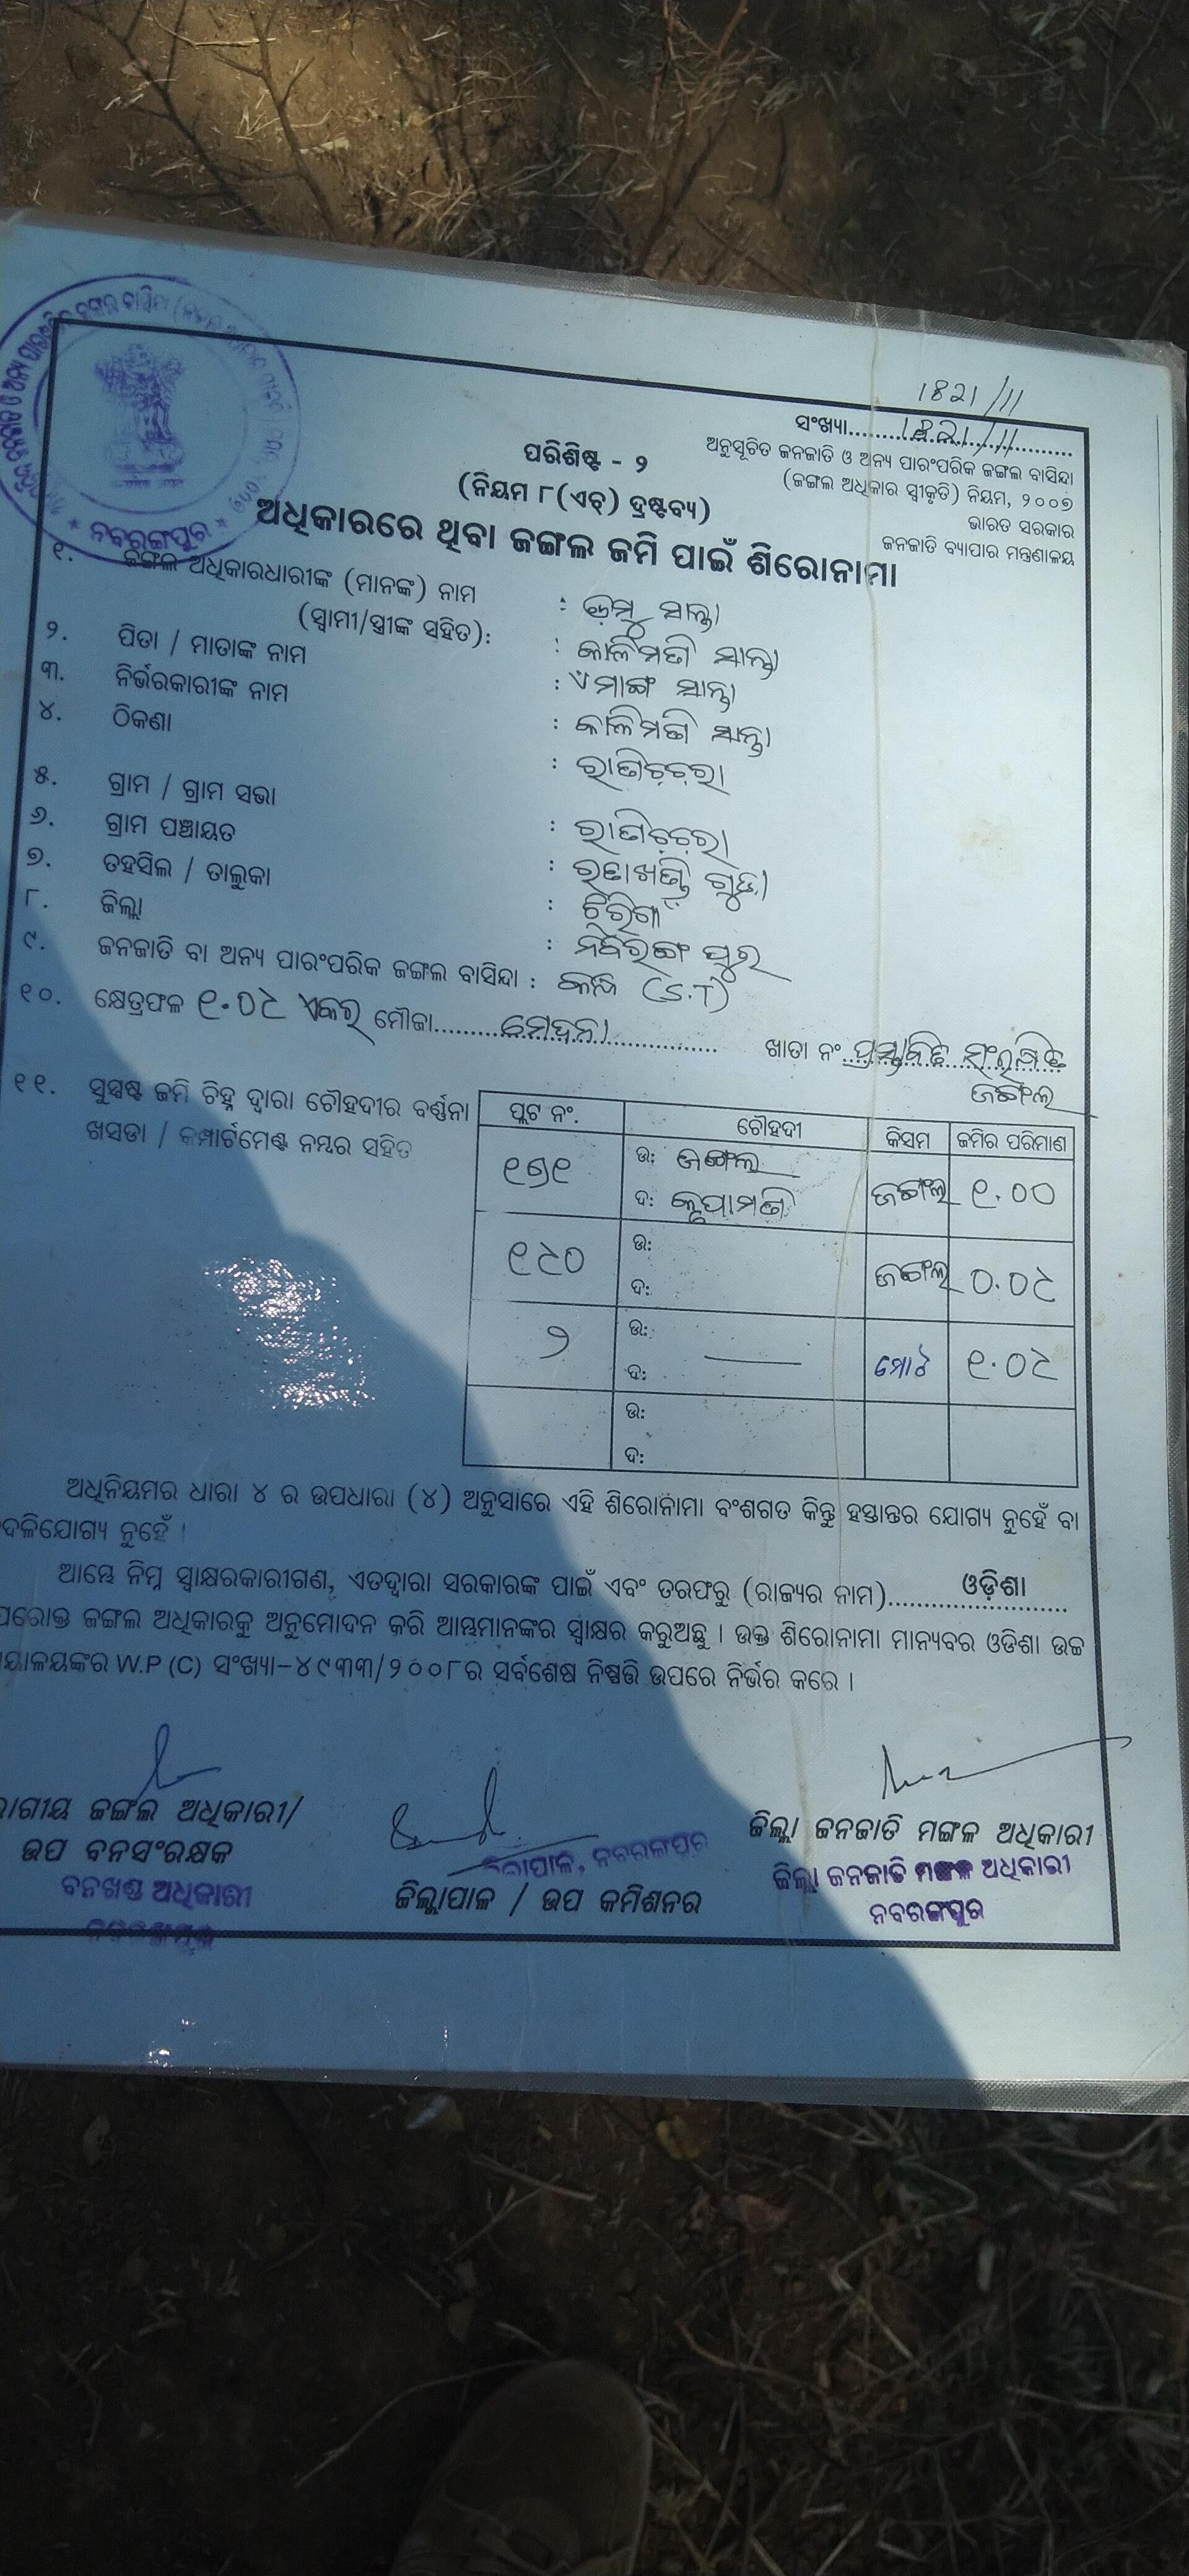 1821/11
ସଂଖ୍ୟା..........1821/11..........
ଅନୁସୂଚିତ ଜନଜାତି ଓ ଅନ୍ୟ ପାରଂପରିକ ଜଙ୍ଗଲ ବାସିନ୍ଦା
(ଜଙ୍ଗଲ ଅଧିକାର ସ୍ୱୀକୃତି) ନିୟମ, ୨୦୦୭
ଭାରତ ସରକାର
ଜନଜାତି ବ୍ୟାପାର ମନ୍ତ୍ରଣାଳୟ
ପରିଶିଷ୍ଟ - ୨
(ନିୟମ ୮(ଏଚ୍) ଦ୍ରଷ୍ଟବ୍ୟ)
ଅଧିକାରରେ ଥିବା ଜଙ୍ଗଲ ଜମି ପାଇଁ ଶିରୋନାମା
ନବରଙ୍ଗପୁର
୧. ଜଙ୍ଗଲ ଅଧିକାରଧାରୀଙ୍କ (ମାନଙ୍କ) ନାମ : ଡମ୍ବୁ ସାନ୍ତା
(ସ୍ୱାମୀ/ସ୍ତ୍ରୀଙ୍କ ସହିତ): : କାଳିମଣି ସାନ୍ତା
୨. ପିତା / ମାତାଙ୍କ ନାମ : ମାଙ୍ଗ ସାନ୍ତା
୩. ନିର୍ଭରକାରୀଙ୍କ ନାମ : କାଳିମଣି ସାନ୍ତା
୪. ଠିକଣା :
୫. ଗ୍ରାମ / ଗ୍ରାମ ସଭା :
୬. ଗ୍ରାମ ପଞ୍ଚାୟତ :
୭. ତହସିଲ / ତାଲୁକା :
୮. ଜିଲ୍ଲା : ନବରଙ୍ଗପୁର
୯. ଜନଜାତି ବା ଅନ୍ୟ ପାରଂପରିକ ଜଙ୍ଗଲ ବାସିନ୍ଦା : (S.T)
୧୦. କ୍ଷେତ୍ରଫଳ ୧.୦୪ ଏକର ମୌଜା..........ମେଦନା.......... ଖାତା ନଂ..ପ୍ରସ୍ତାବିତ ସଂରକ୍ଷିତ
ଜଙ୍ଗଲ
୧୧. ସୁସ୍ପଷ୍ଟ ଜମି ଚିହ୍ନ ଦ୍ୱାରା ଚୌହଦୀର ବର୍ଣ୍ଣନା
ଖସଡା / କମ୍ପାର୍ଟମେଣ୍ଟ ନମ୍ବର ସହିତ
ପ୍ଲଟ ନଂ. ଚୌହଦୀ କିସମ ଜମିର ପରିମାଣ
୧୭୧ ଉ: ଜଙ୍ଗଲ ଜଙ୍ଗଲ ୧.୦୦
ଦ:
୧୪୦ ଉ: ଜଙ୍ଗଲ ୦.୦୪
ଦ:
୨ ଉ: ମୋଟ ୧.୦୪
ଦ:
ଉ:
ଦ:
ଅଧିନିୟମର ଧାରା ୪ ର ଉପଧାରା (୪) ଅନୁସାରେ ଏହି ଶିରୋନାମା ବଂଶଗତ କିନ୍ତୁ ହସ୍ତାନ୍ତର ଯୋଗ୍ୟ ନୁହେଁ ବା
ଦଳିଯୋଗ୍ୟ ନୁହେଁ ।
ଆମ୍ଭେ ନିମ୍ନ ସ୍ୱାକ୍ଷରକାରୀଗଣ, ଏତଦ୍ୱାରା ସରକାରଙ୍କ ପାଇଁ ଏବଂ ତରଫରୁ (ରାଜ୍ୟର ନାମ)..........ଓଡ଼ିଶା..........
ପରୋକ୍ତ ଜଙ୍ଗଲ ଅଧିକାରକୁ ଅନୁମୋଦନ କରି ଆମ୍ଭମାନଙ୍କର ସ୍ୱାକ୍ଷର କରୁଅଛୁ । ଉକ୍ତ ଶିରୋନାମା ମାନ୍ୟବର ଓଡିଶା ଉଚ୍ଚ
ୟାଳୟଙ୍କର W.P (C) ସଂଖ୍ୟା-୪୯୩୩/୨୦୦୮ର ସର୍ବଶେଷ ନିଷ୍ପତ୍ତି ଉପରେ ନିର୍ଭର କରେ ।
ଭାଗୀୟ ଜଙ୍ଗଲ ଅଧିକାରୀ/
ଉପ ବନସଂରକ୍ଷକ
ବନଖଣ୍ଡ ଅଧିକାରୀ
ନବରଙ୍ଗପୁର
ଜିଲ୍ଲାପାଳ, ନବରଙ୍ଗପୁର
ଜିଲ୍ଲାପାଳ / ଉପ କମିଶନର
ଜିଲ୍ଲା ଜନଜାତି ମଙ୍ଗଳ ଅଧିକାରୀ
ଜିଲ୍ଲା ଜନଜାତି ମଙ୍ଗଳ ଅଧିକାରୀ
ନବରଙ୍ଗପୁର